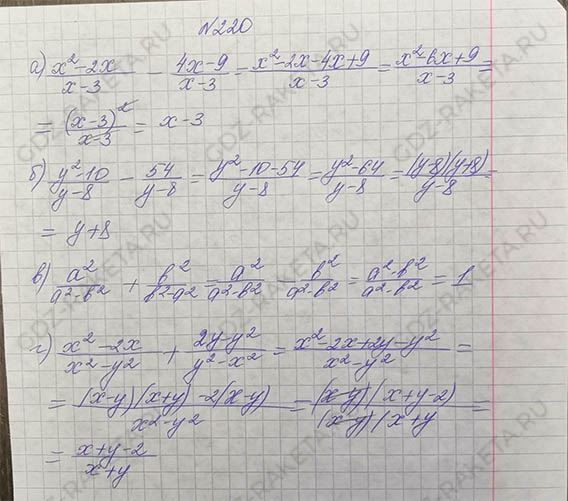 №220
а) (x²-2x)/(x-3) - (4x-9)/(x-3) = (x²-2x-4x+9)/(x-3) = (x²-6x+9)/(x-3) =
= (x-3)²/(x-3) = x-3
б) (y²-10)/(y-8) - 54/(y-8) = (y²-10-54)/(y-8) = (y²-64)/(y-8) = (y-8)(y+8)/(y-8) =
= y+8
в) a²/(a²-b²) + b²/(b²-a²) = a²/(a²-b²) - b²/(a²-b²) = (a²-b²)/(a²-b²) = 1
г) (x²-2x)/(x²-y²) + (2y-y²)/(y²-x²) = (x²-2x+2y-y²)/(x²-y²) =
= ((x-y)(x+y)-2(x-y))/(x²-y²) = (x-y)(x+y-2)/(x-y)(x+y =
= (x+y-2)/(x+y)
GDZ-RAKETA.RU